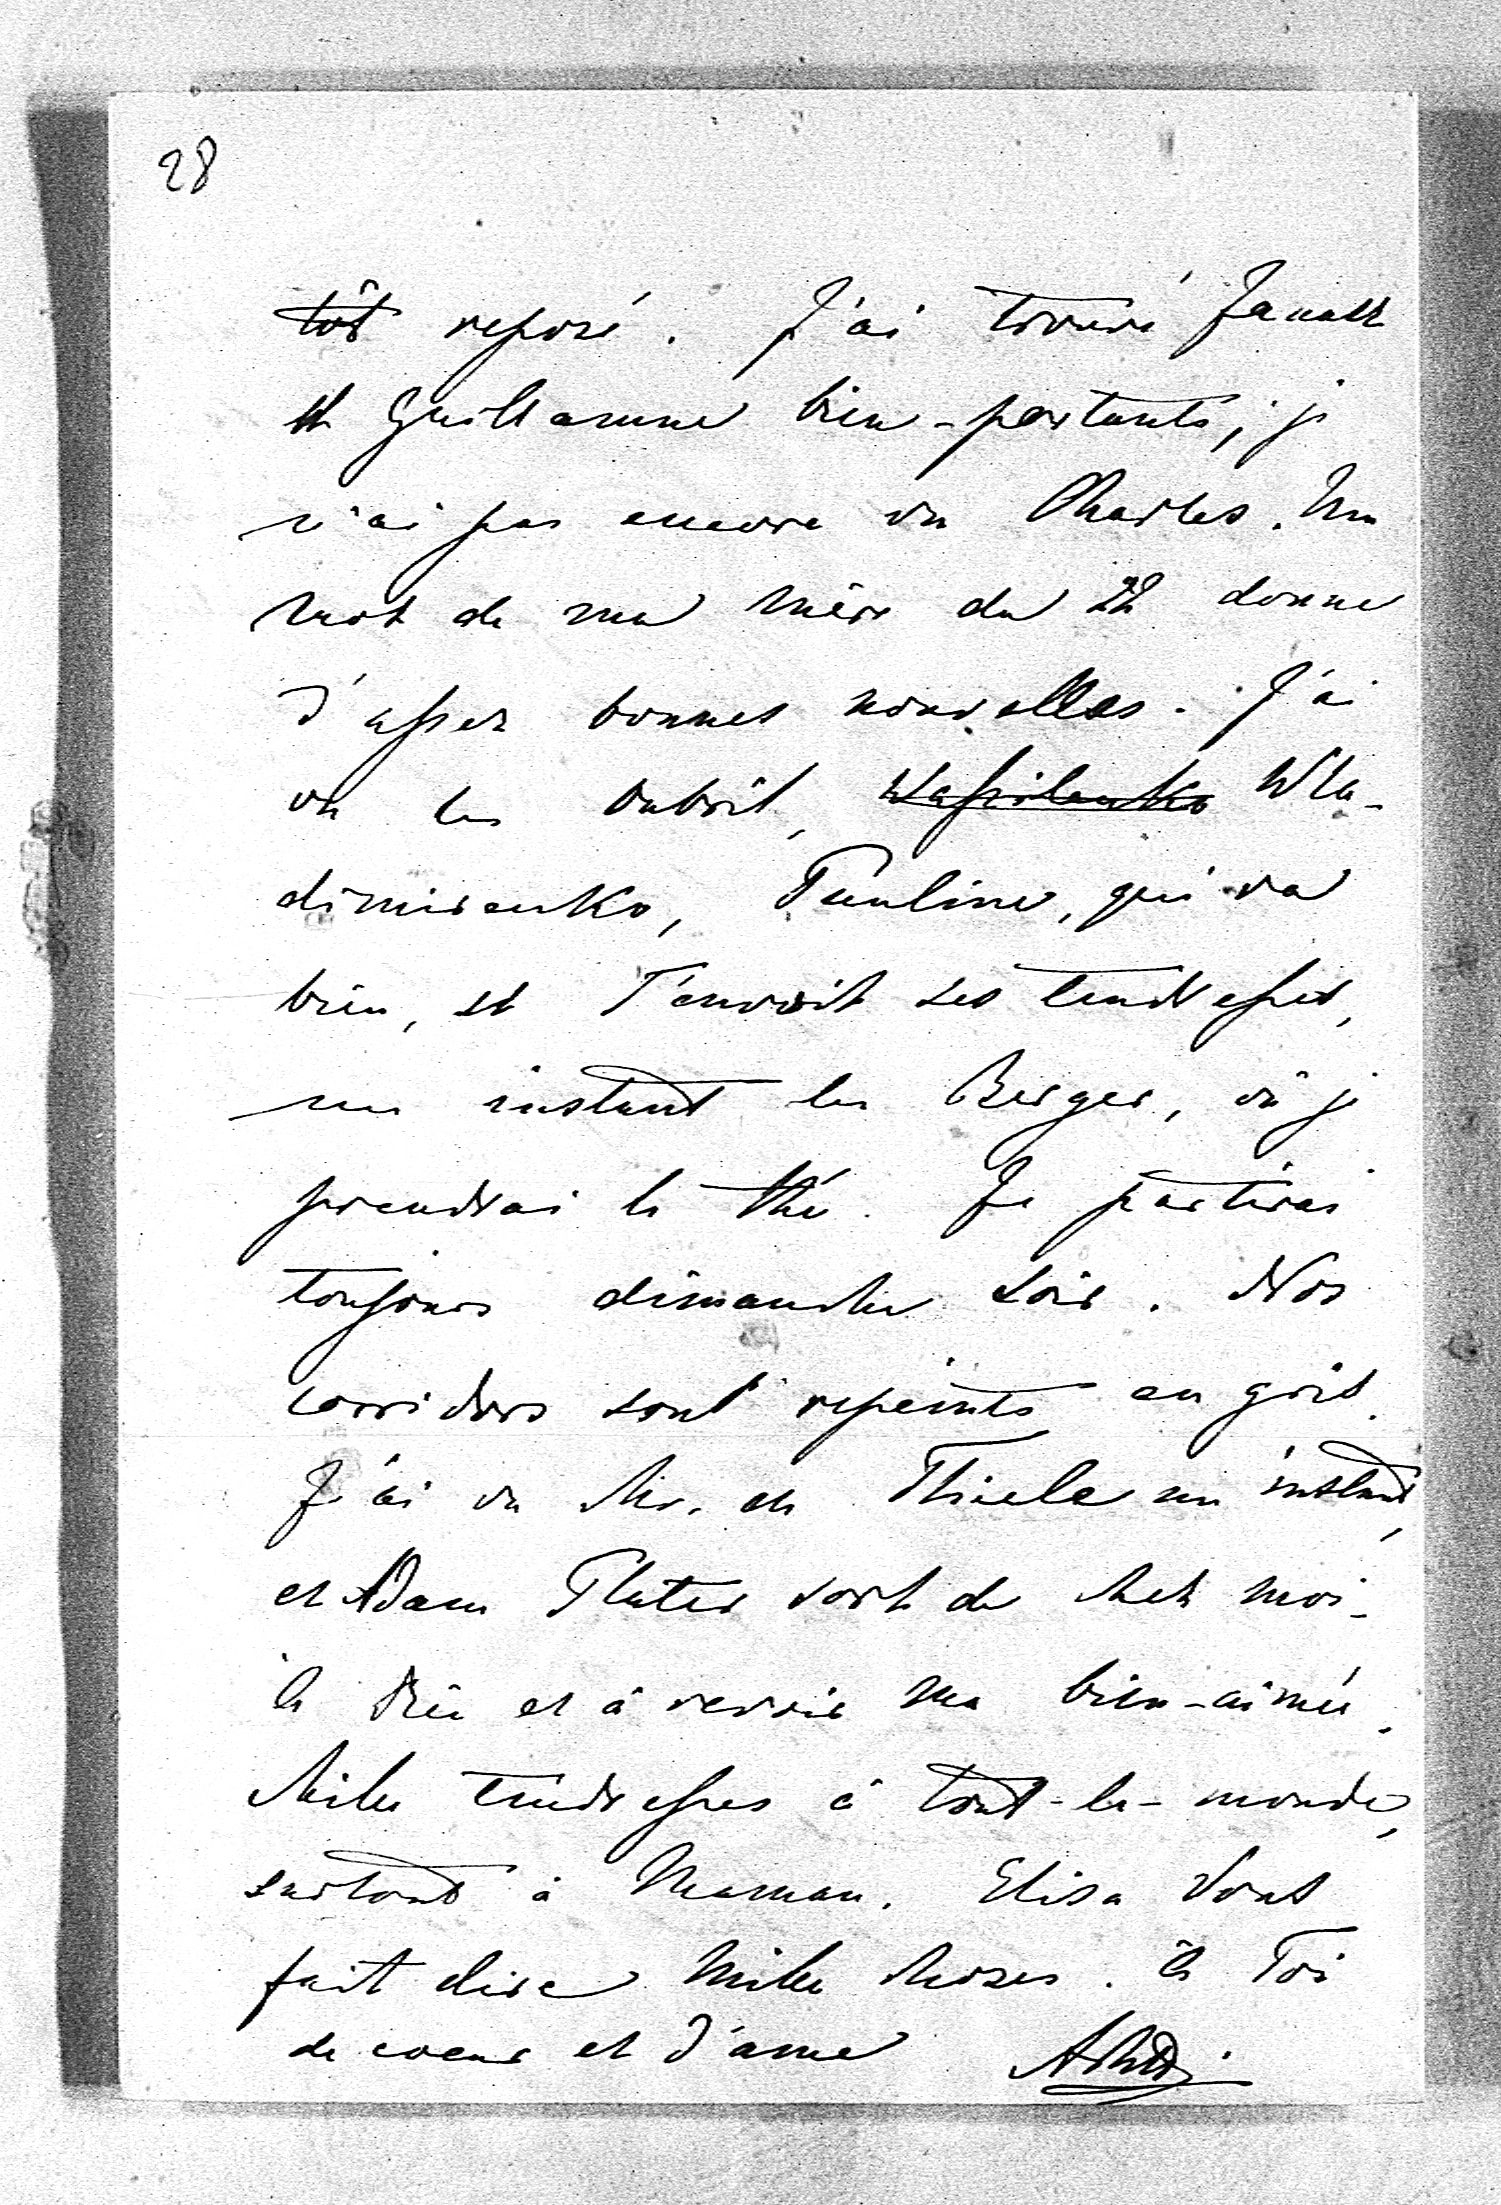 28
tôt reposé. J'ai trouvé
et Guillaume bien-portants; je
n'ai pas encore vu Charles. Un
mot de ma mère du 22 donne
d'assez bonnes nouvelles. J'ai
vu les Wassilenko Wla-
dimirenko, Pauline, qui va
bien, et T'envoit ses tendresses,
un instant les Berger, où je
prendrai le thé. Je partirai
toujours dimanche soir. Nos
corridors sont repeints en gris.
J'ai vu Mr. de Thiele un instant,
et Adam Plater sort de chez moi.
à Dieu et à revoir ma bien-aimée.
Milles tendresses à tout-le-monde,
surtout à Maman. Elisa Vous
fait dire milles choses. à Toi
de coeur et d'âme